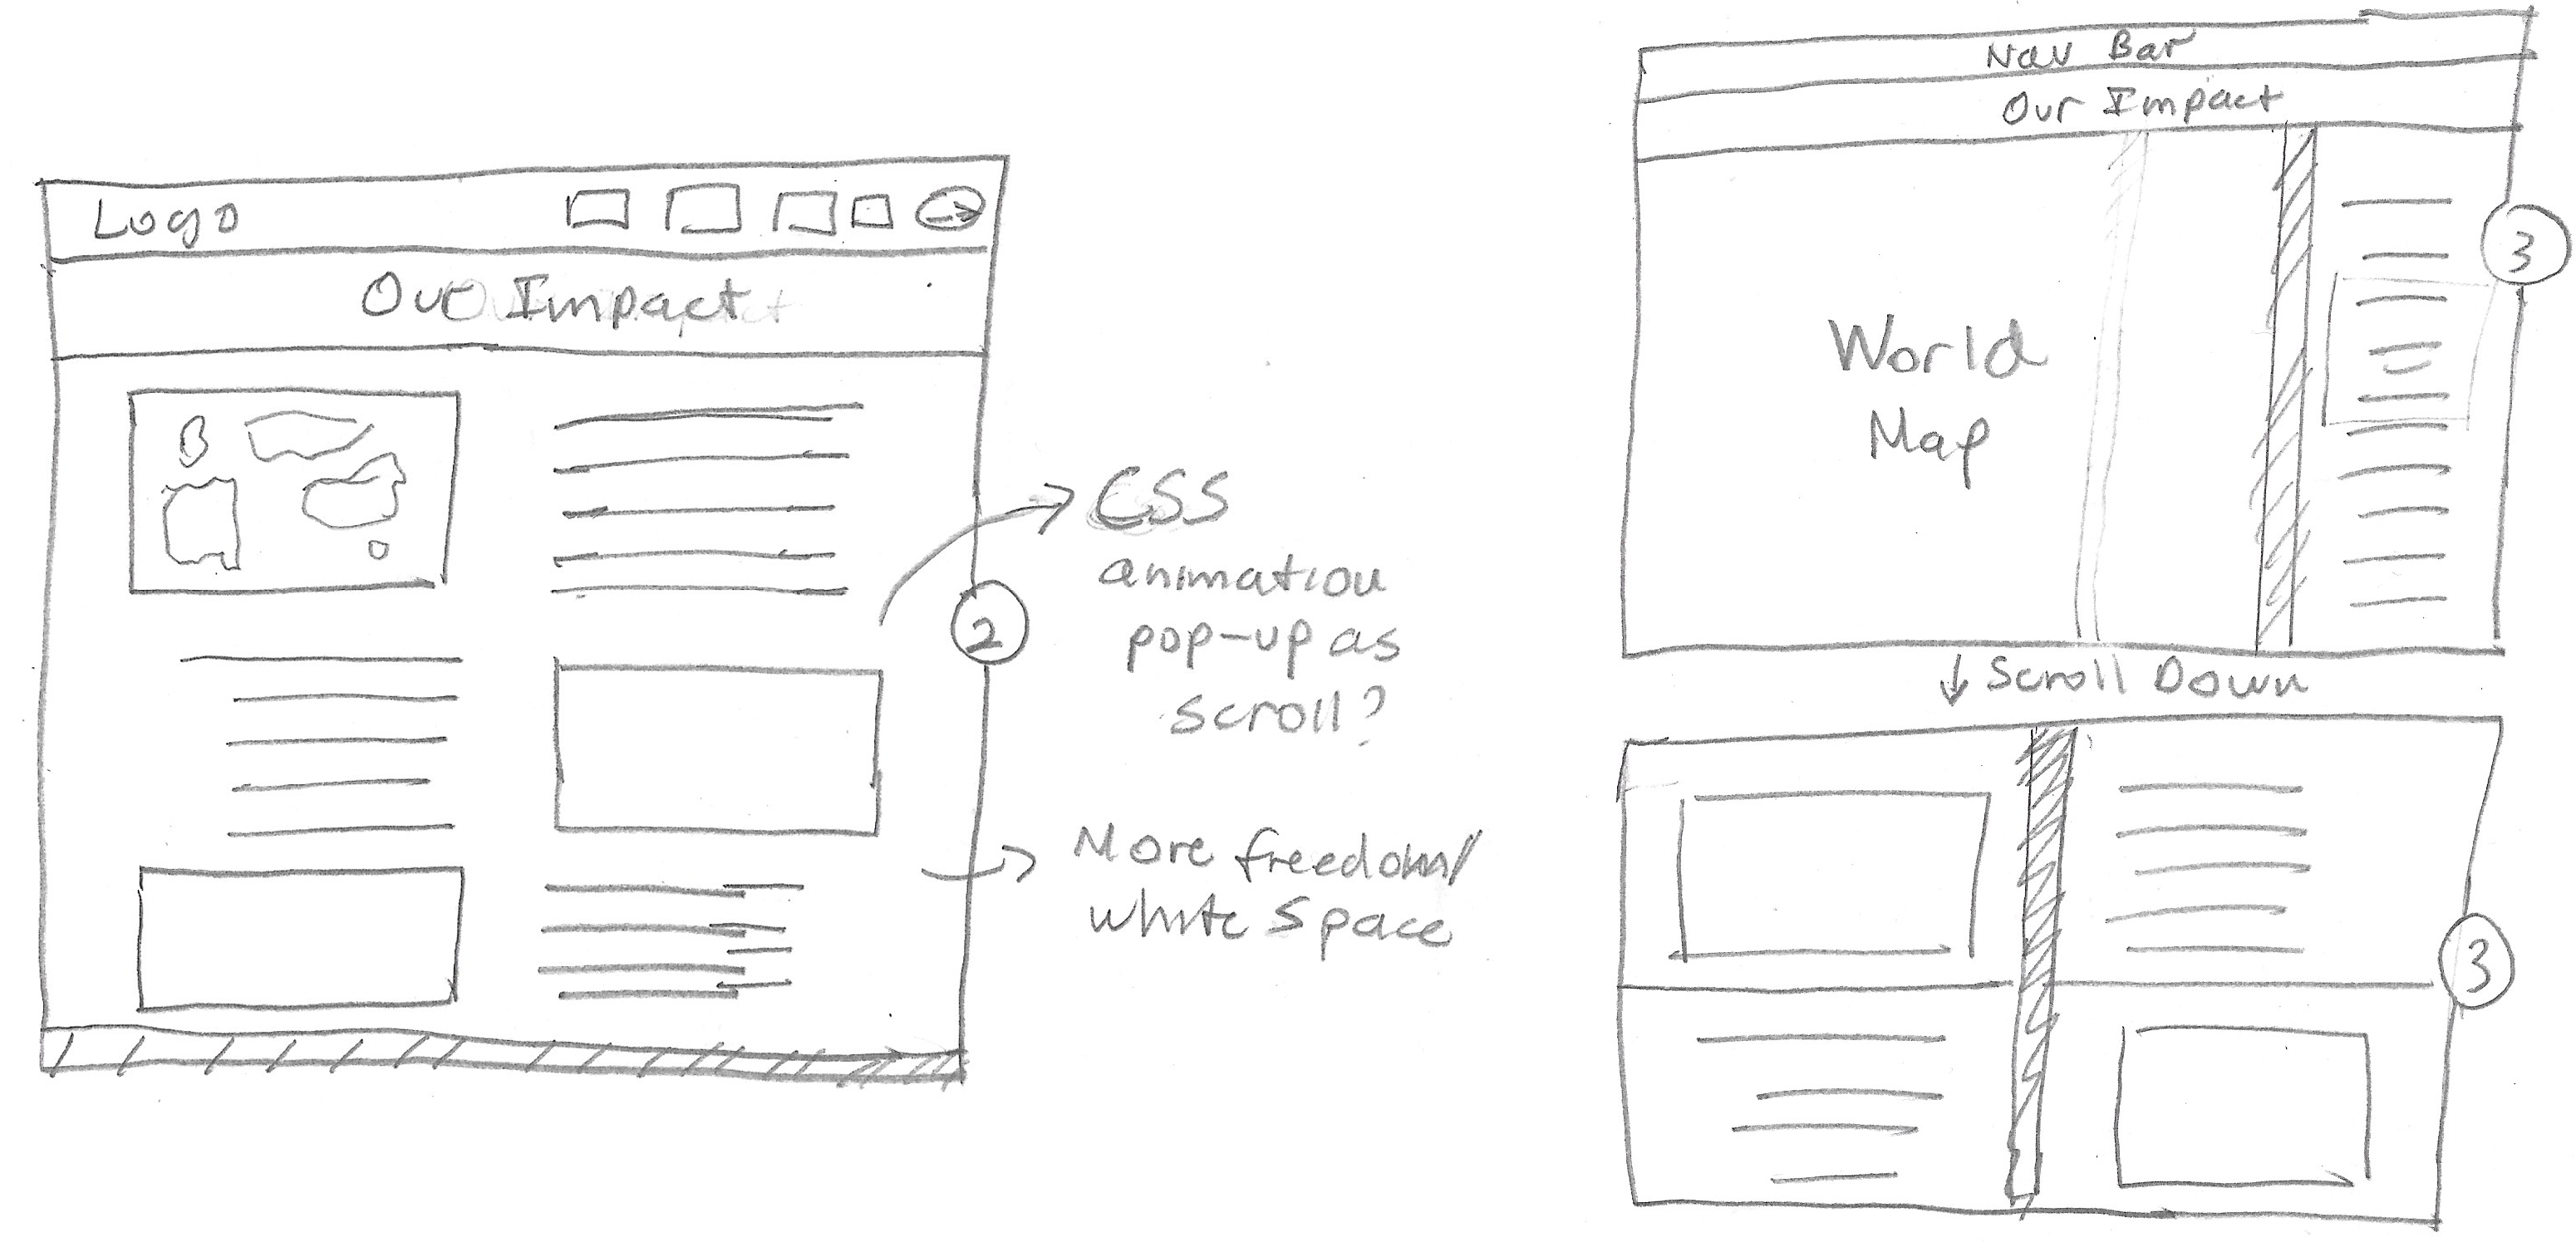 Logo
Our Impact
2
CSS
animation
pop-up as
scroll?
More freedom/
white space
Nav Bar
Our Impact
World
Map
3
↓ Scroll Down
3